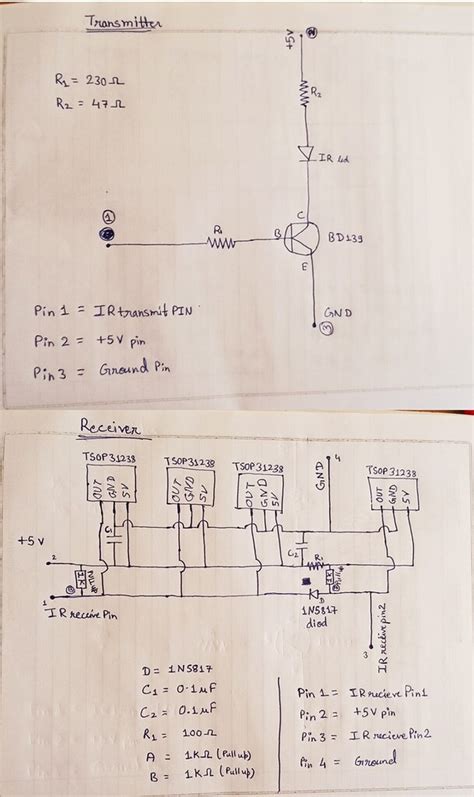 Transmitter
+5V ②
R1 = 230Ω
R2 = 47Ω
R2
IR led
①
R1
B
C
BD139
E
GND
③
Pin 1 = IR transmit PIN
Pin 2 = +5V pin
Pin 3 = Ground Pin
Receiver
TSOP31238 TSOP31238 TSOP31238 TSOP31238
OUT GND 5V OUT GND 5V OUT GND 5V OUT GND 5V
GND 4
C1
C2
R1
+5V
2
1K
1K
1
IR receive Pin
D
1N5817
diod
IR receive pin2
3
D = 1N5817
C1 = 0.1µF
C2 = 0.1µF
R1 = 100Ω
A = 1KΩ (Pull up)
B = 1KΩ (Pull up)
Pin 1 = IR recieve Pin1
Pin 2 = +5V pin
Pin 3 = IR recieve Pin2
Pin 4 = Ground